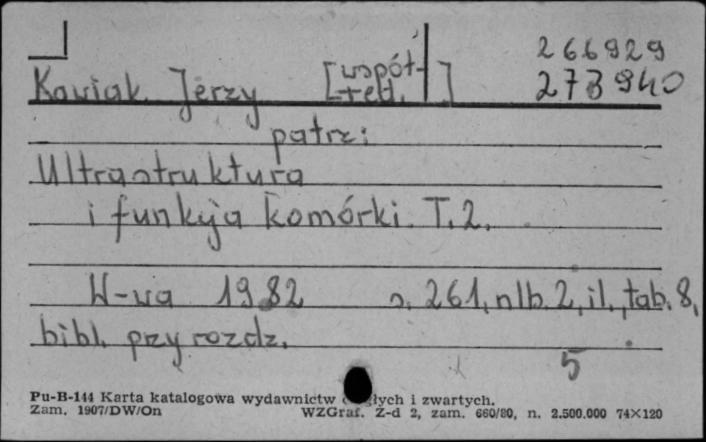 266929
Kawiak Jerzy [współ-red.] 273940
patrz:
Ultrastruktura
i funkcja komórki. T.2.
W-wa 1982 s. 261, nlb. 2, il., tab. 8,
bibl. przy rozdz.
5
Pu-B-144 Karta katalogowa wydawnictw i zwartych.
Zam. 1907/DW/On WZGraf. Z-d 2, zam. 660/80, n. 2.500.000 74×120